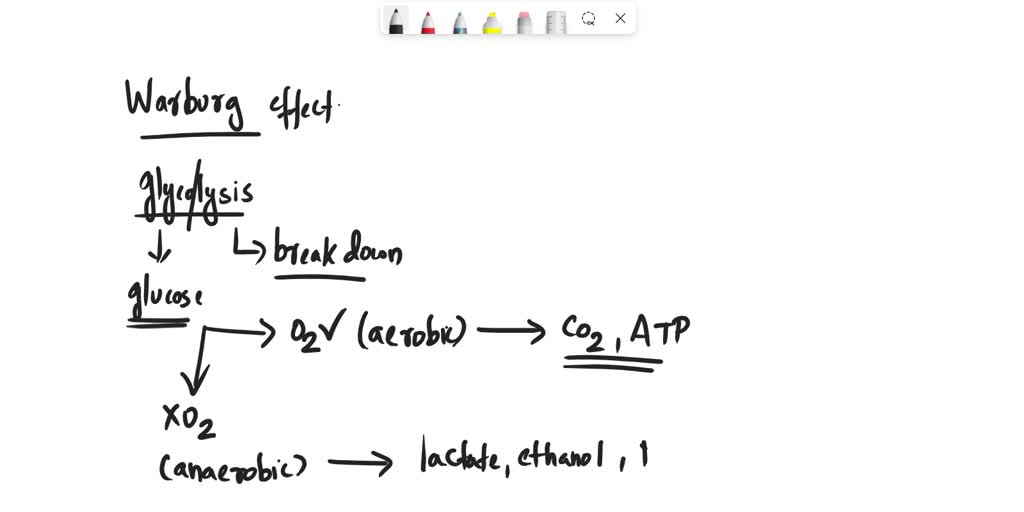 Warburg effect
glycolysis
breakdown
glucose
O2✓ (aerobic) → CO2, ATP
XO2
(anaerobic) → lactate, ethanol,